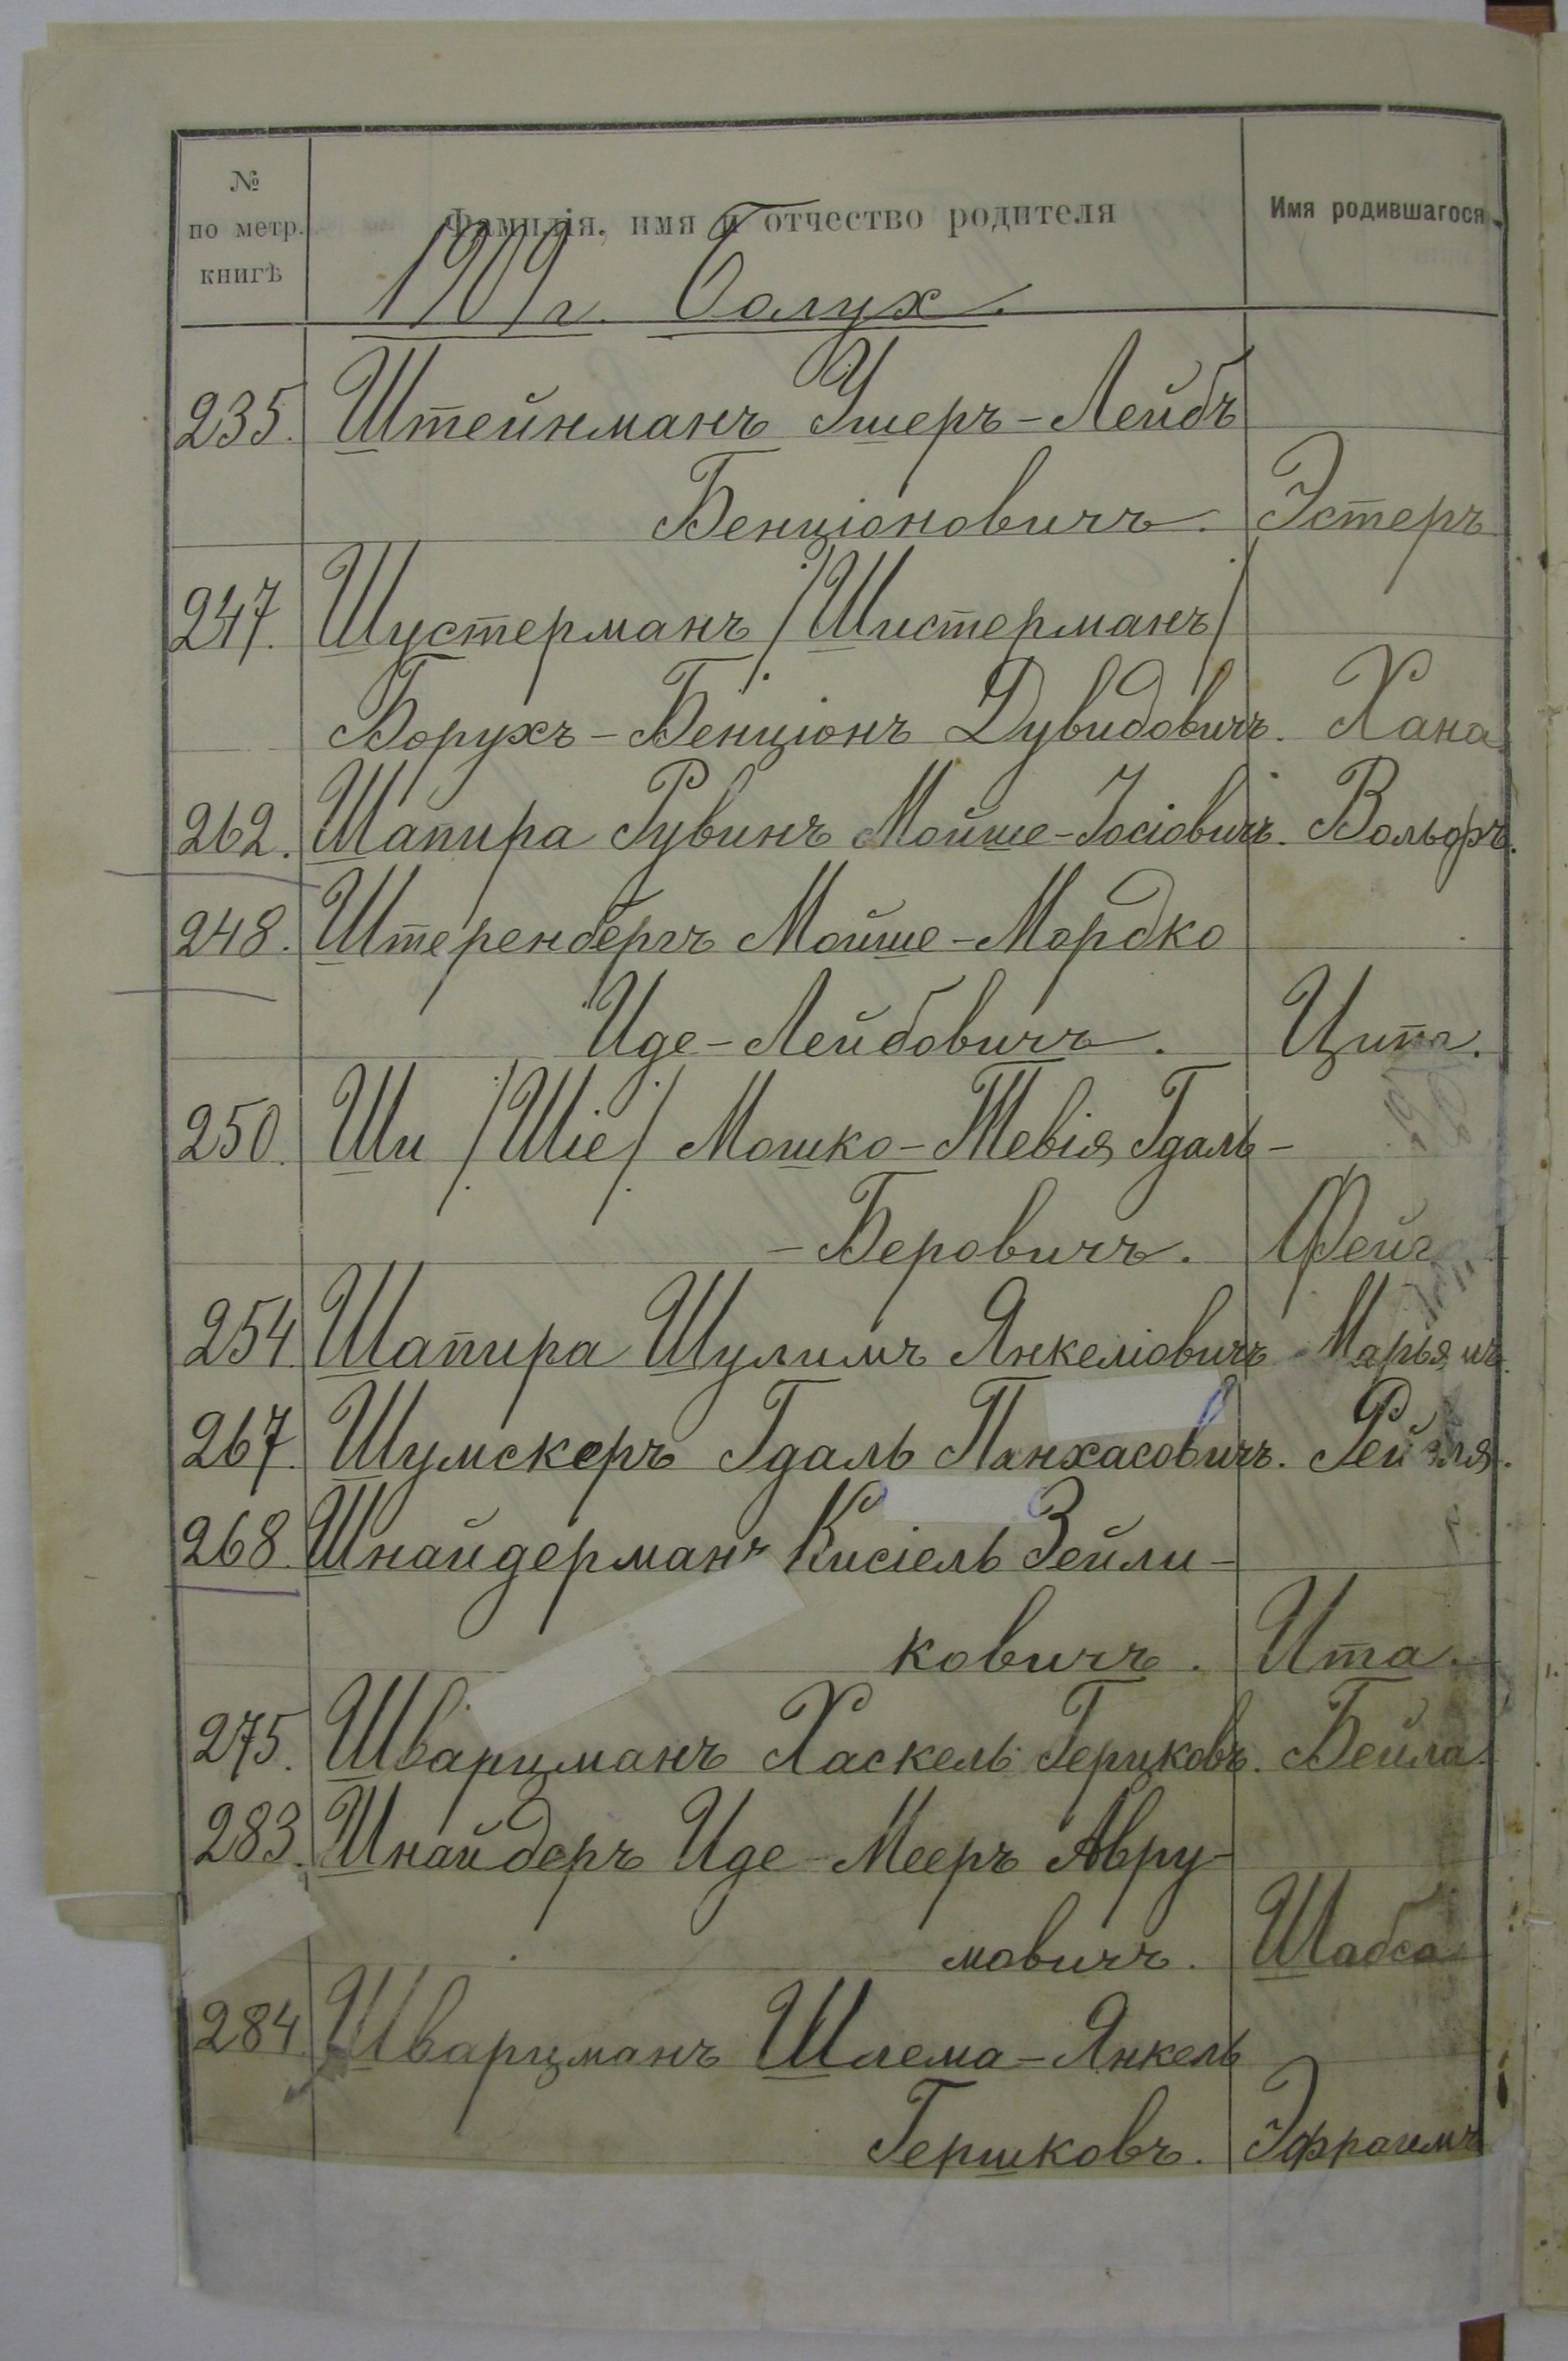 № по метр. книгѣ Фамилія, имя и отчество родителя Имя родившагося
1909 г.
235. Штейнманъ Ушеръ-Лейбъ
Бенціоновичъ. Эстеръ
247. Шустерманъ /Шистерманъ/
Борухъ-Бенціонъ Дувидовичъ. Хана
262. Шапира Рувинъ Мойше-Іосіовичъ. Вольфъ.
248. Штеренбергъ Мойше-Мордко
Иде-Лейбовичъ. Ципа.
250. Ши /Шіе/ Мошко-Тевія Гдаль-
-Беровичъ.
254. Шапира Шулимъ Янкеліовичъ Марьямъ.
267. Шумскеръ Гдаль Пинхасовичъ. Рейзля.
268. Шнайдерманъ Кисіель Зейли-
ковичъ. Ита.
275. Шварцманъ Хаскель Герцковъ. Бейла.
283. Шнайдеръ Иде-Мееръ Авру-
мовичъ. Шабса
284. Шварцманъ Шлема-Янкель
Гершковъ. Эфраимъ